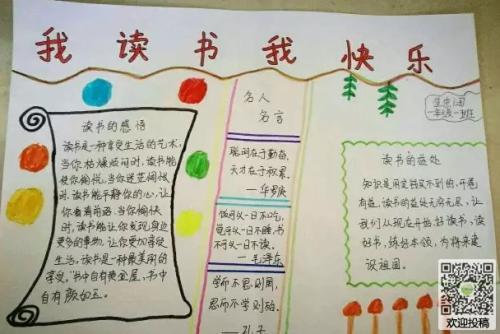 我读书我快乐
读书的感悟
读书是一种享受生活的艺术,
当你枯燥烦闷时,读书能
使你愉悦,当你迷茫惆怅
时,读书能平静你的心,让
你看清前路,当你愉快
时,读书能让你发现身边
更多的事物,让你更加享受
生活。读书是一种最美丽的
享受。书中自有黄金屋,书中
自有颜如玉。
名人
名言
聪明在于勤奋,
天才在于积累。
—华罗庚
饭可以一日不吃,
觉可以一日不睡,书
不可以一日不读。
—毛泽东
学而不思则罔,
思而不学则殆。
—孔子
一年级一班
读书的益处
知识是用金钱买不到的,开卷
有益,读书的益处无穷无尽,让
我们从现在开始,好读书,读
好书,练好本领,为将来建
设祖国。
欢迎投稿